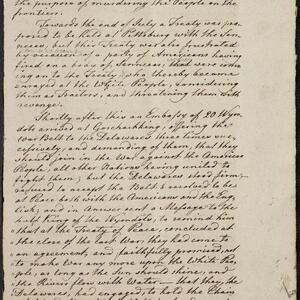 the purpose of murdering the People on the
frontiers.
Towards the end of July a Treaty was pro-
posed to be held at Pittsburg with the Sen-
necas, but this Treaty was also frustrated
by a party of Americans having
fired on a body of Sennecas, that were com-
ing on to the Treaty, who thereby became
enraged at the White People, considering
them as Traitors, and threatening them with
revenge.
Shortly after this an Embassy of 20 Wyn-
dots arrived at Goschachking, offering the
War Belt to the Delawares three times suc-
cessively, and demanding of them, that they
should join in the War against the American
People, all other Nations having united to
fight them; but the Delawares stood firm,
refused to accept the Belt & resolved to be
at Peace both with the Americans and the Eng-
lish; and in Answer sent a Message to the
Half King of the Wyndots, to remind him
that at the Treaty of Peace, concluded at
the close of the last War, they had come to
an agreement, and faithfully promised, not
to make War any more upon the White Peo-
ple, as long as the Sun should shine, and
the Rivers flow with Water — that they, the
Delawares, had engaged, to hold the Chain